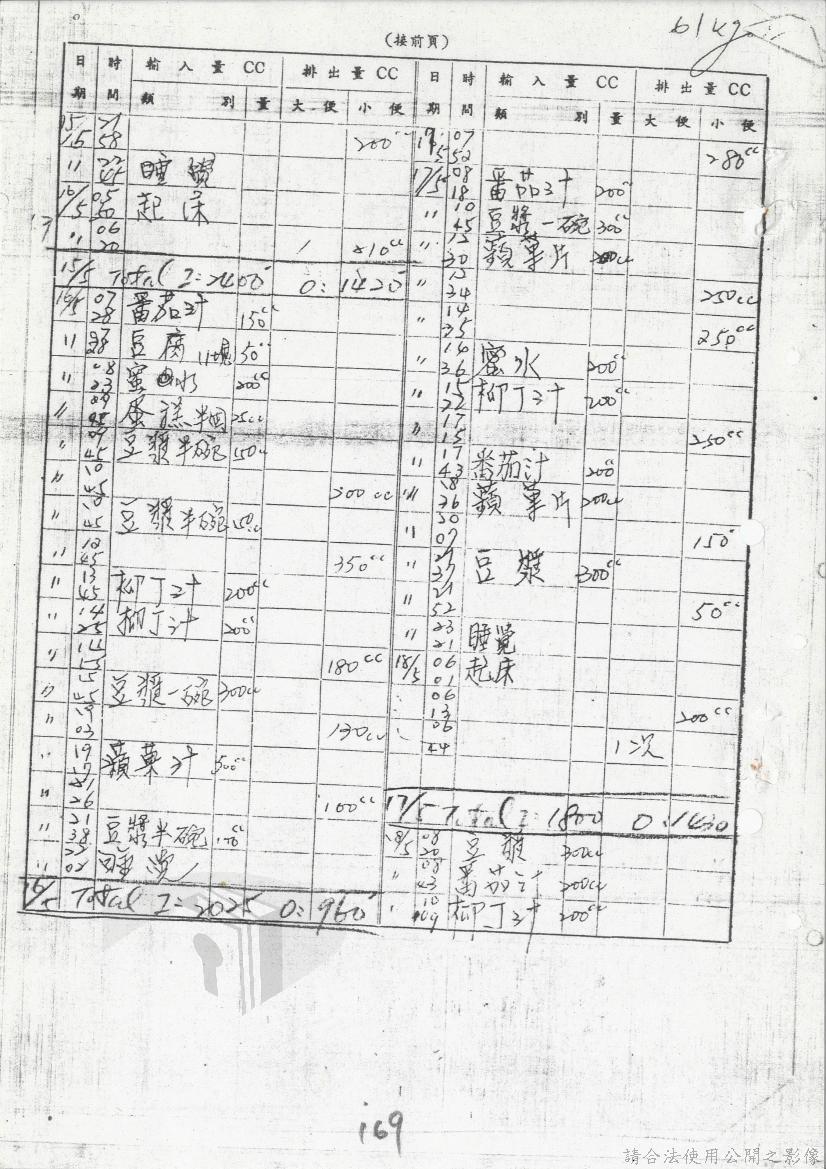 61kg
(接前頁)
日期 時間 輸入量CC 排出量CC
類別 量 大便 小便
15/5 21 58 200cc
〃 22 45 睡覺
16/5 05 50 起床
〃 06 20 1 210cc
15/5 Total I: 2400 O: 1420
16/5 07 28 番茄汁 150cc
〃 豆腐 1塊 50cc
〃 08 23 蜜水 200cc
〃 蛋糕半個 25cc
〃 09 45 豆漿半碗 150cc
〃 10 45 300cc
〃 10 45 豆漿半碗 150cc
〃 12 45 350cc
〃 13 45 柳丁汁 200cc
〃 14 25 柳丁汁 200cc
〃 180cc
〃 15 45 豆漿一碗 300cc
〃 19 03 130cc
〃 19 蘋菓汁 500cc
〃 21 26 100cc
〃 21 38 豆漿半碗
〃 22 02 睡覺
16/5 Total I: 2025 O: 960
日期 時間 輸入量CC 排出量CC
類別 量 大便 小便
07 52 280cc
17/5 08 18 番茄汁 200cc
〃 10 45 豆漿一碗 300cc
〃 12 30 蘋菓片 200cc
〃 34 250cc
14 25 250cc
〃 14 36 蜜水 200cc
〃 15 22 柳丁汁 200cc
17 15 250cc
〃 17 43 番茄汁 200cc
〃 18 36 蘋菓片 200cc
〃 07 150
〃 37 豆漿 300cc
〃 21 52 50cc
〃 23 21 睡覺
18/5 06 01 起床
06 13 200cc
06 44 1次
17/5 Total I: 1800 O: 1430
18/5 08 20 豆漿 300cc
〃 08 43 番茄汁 200cc
〃 10 09 柳丁汁 200cc
169
請合法使用公開之影像